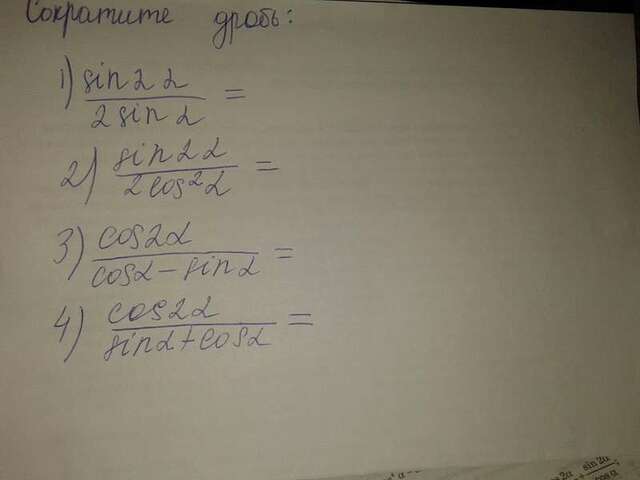 Сократите дробь:
1) sin2α / 2sinα =
2) sin2α / 2cos²α =
3) cos2α / cosα - sinα =
4) cos2α / sinα + cosα =
sin2α